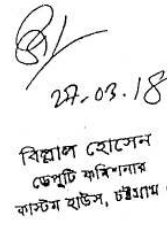 27-03-18
বিল্লাল হোসেন
ডেপুটি কমিশনার
কাস্টম হাউস, চট্টগ্রাম